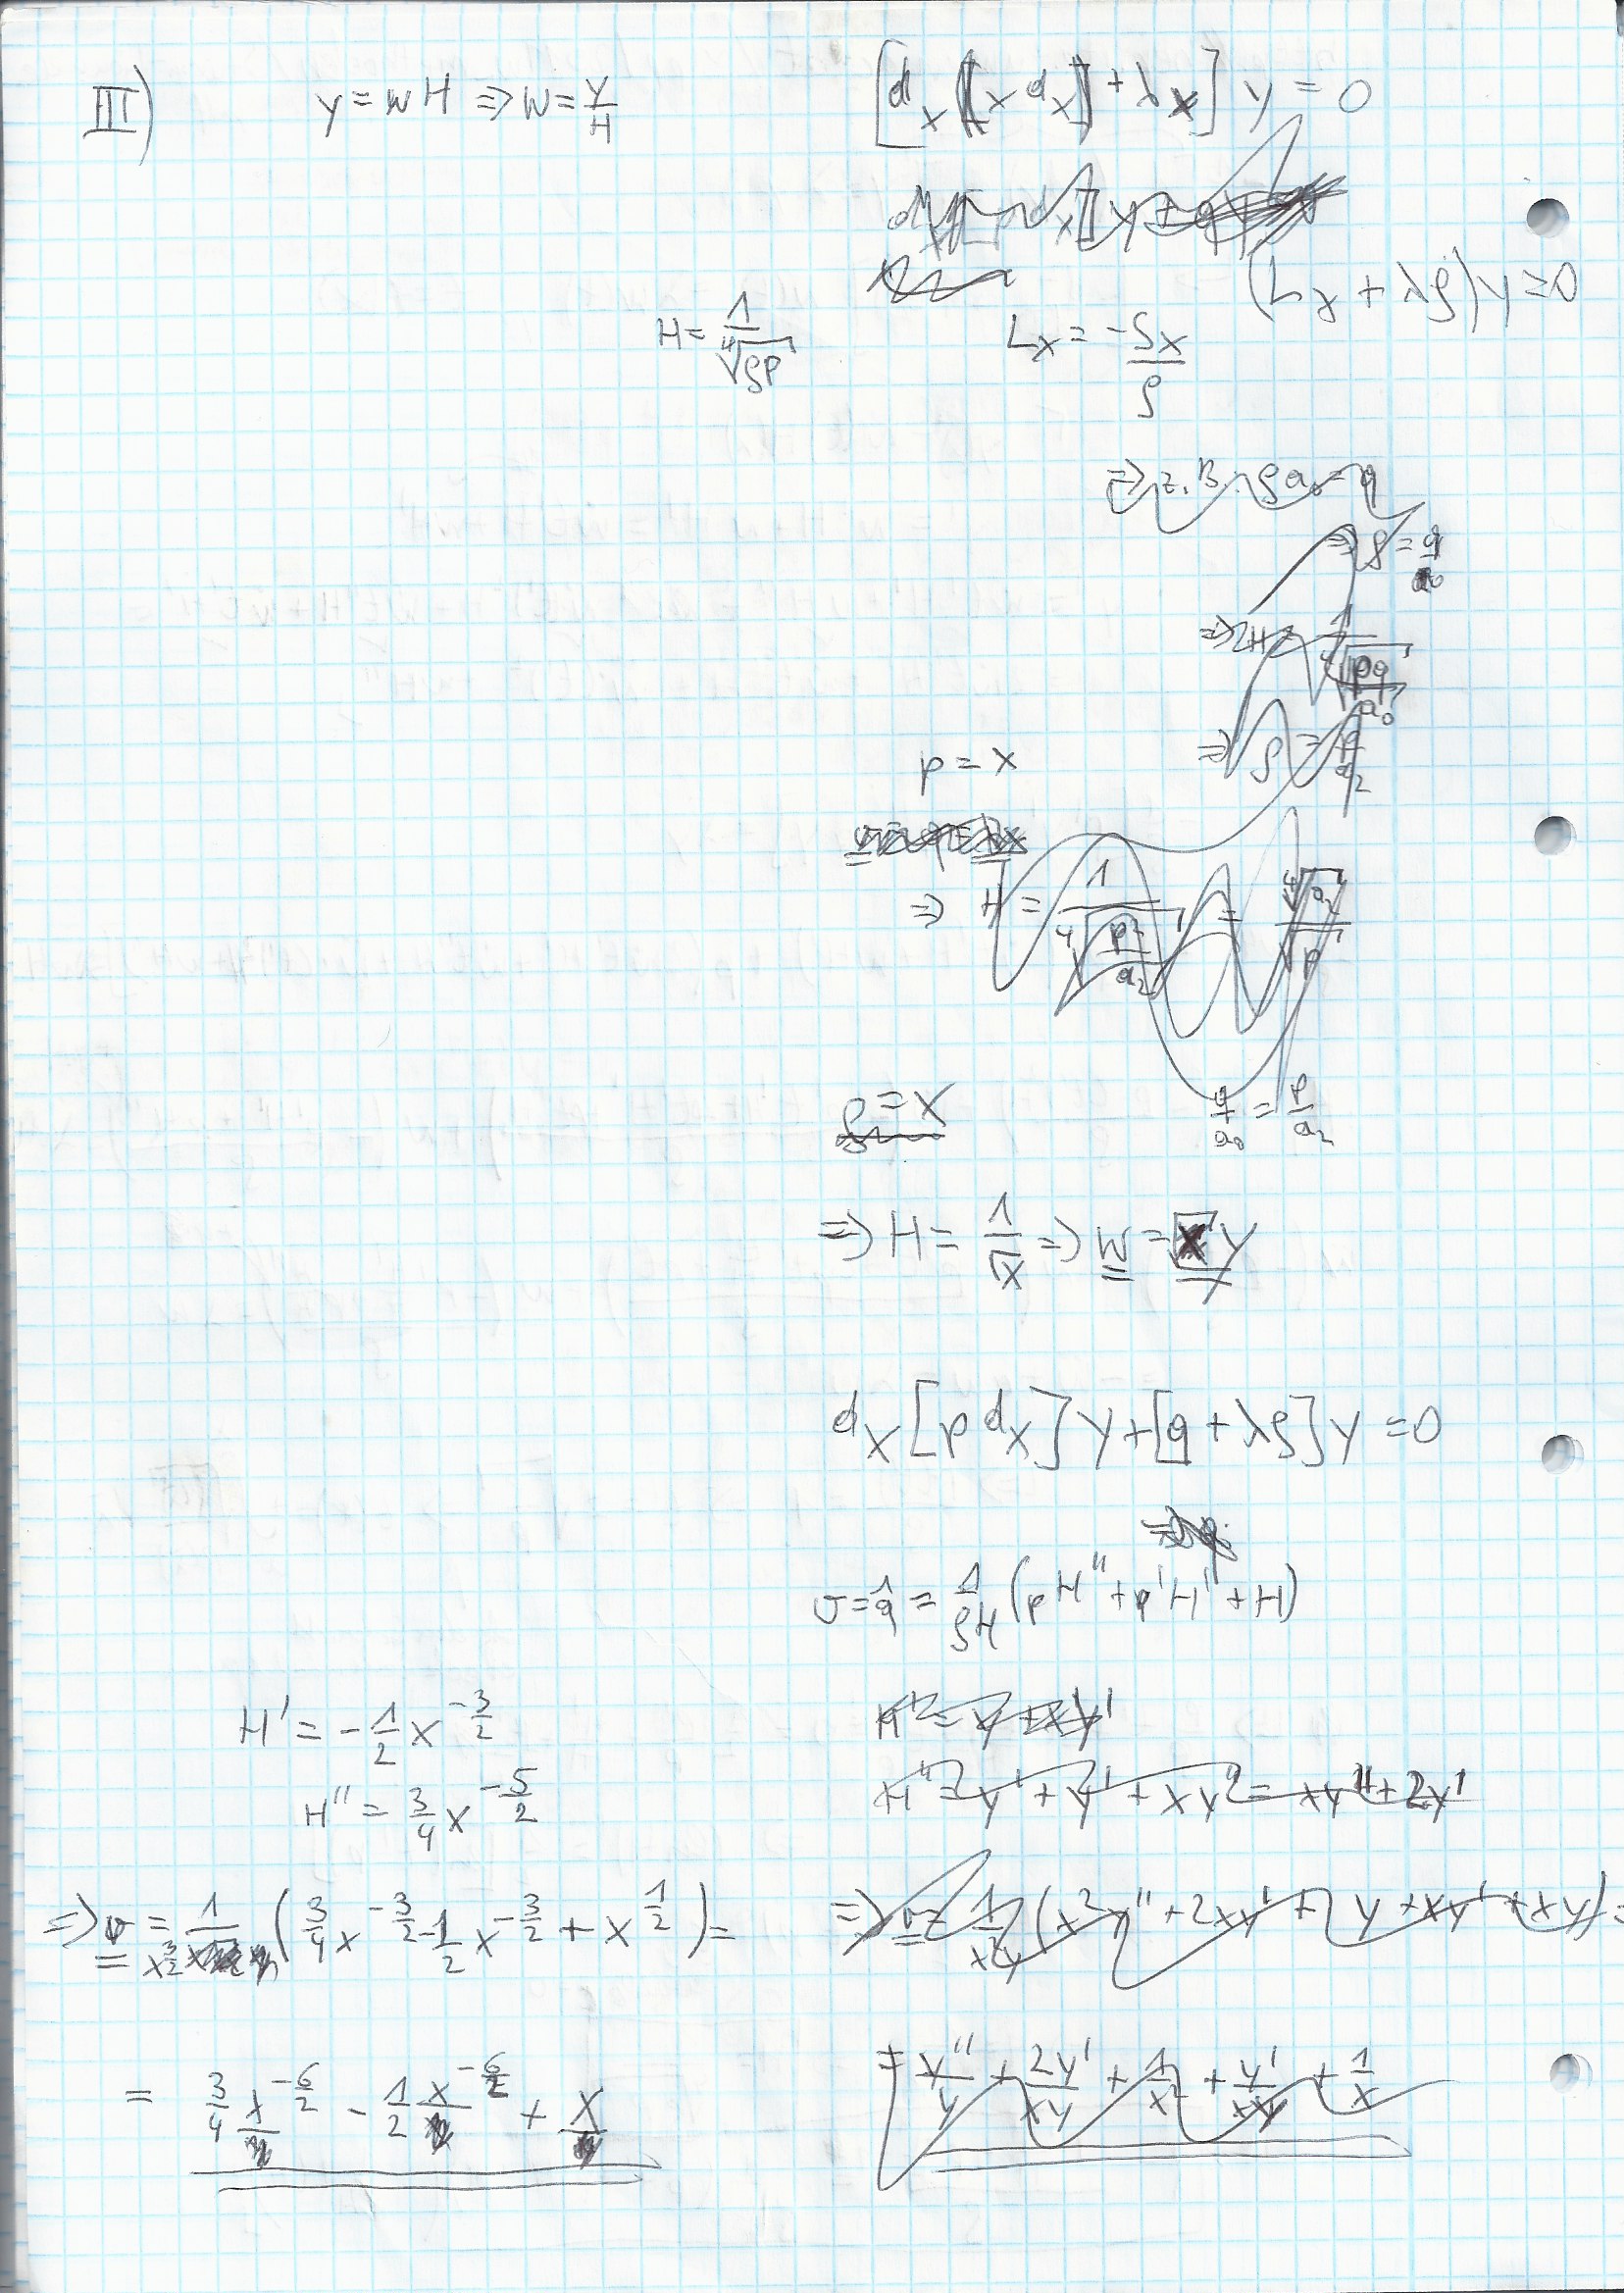 III) y = wH ⇒ w = y/H [d_x(x d_x) + λx] y = 0
(L_x + λρ)y = 0
H = 1/∜(ρp) L_x = -S_x/ρ
⇒ z.B.: ρa₀ = q
⇒ ρ = q/a₀
⇒ H = 1/∜(pq/a₀)
p = x ⇒ ρ = p/a₂
⇒ H = 1/∜(p²/a₂) = ∜a₂/√p
ρ = x q/a₀ = p/a₂
⇒ H = 1/√x ⇒ w = √x y
d_x[p d_x]y + [q + λρ]y = 0
v = q̂ = 1/(ρH) (pH'' + p'H' + H)
H' = -1/2 x^(-3/2) H' = y + xy'
H'' = 3/4 x^(-5/2) H'' = y' + y' + xy'' = xy'' + 2y'
⇒ v = 1/x^(3/2) (3/4 x^(-3/2) - 1/2 x^(-3/2) + x^(1/2)) = ⇒ v = 1/(x²y) (x²y'' + 2xy' + y + xy' + xy) =
= 3/4 x^(-6/2) - 1/2 x^(-6/2) + x = y''/y + 2y'/(xy) + 1/x² + y'/(xy) + 1/x